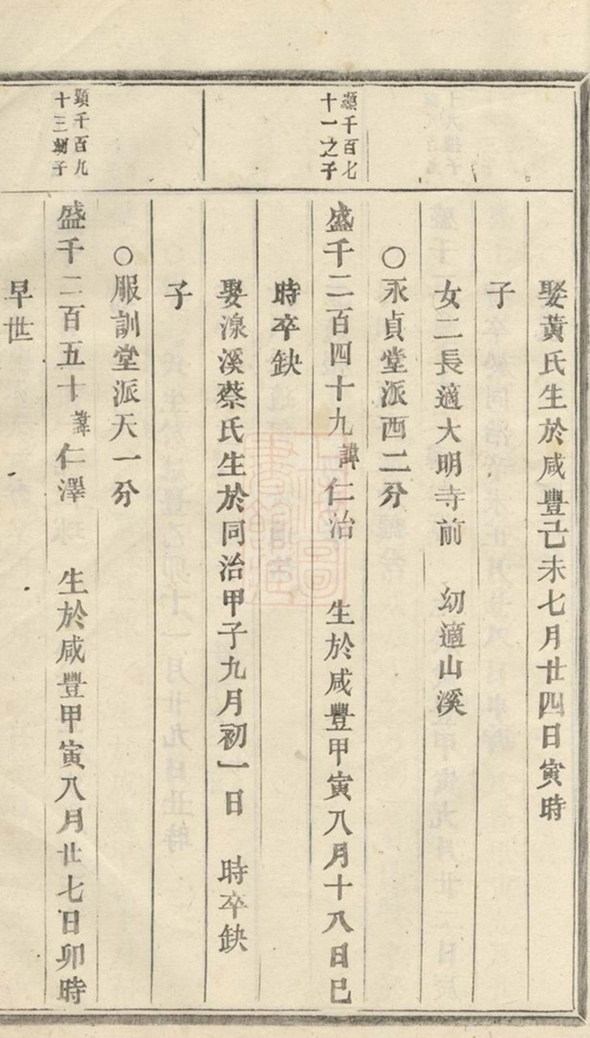 娶黃氏生於咸豐己未七月廿四日寅時
子
女二長適大明寺前 幼適山溪
○永貞堂派酉二分
顯千百七
十一之子
盛千二百四十九諱仁治 生於咸豐甲寅八月十八日巳
時卒缺
娶湶溪蔡氏生於同治甲子九月初一日 時卒缺
子
○服訓堂派天一分
顯千百九
十三嗣子
盛千二百五十諱仁澤 生於咸豐甲寅八月廿七日卯時
早世